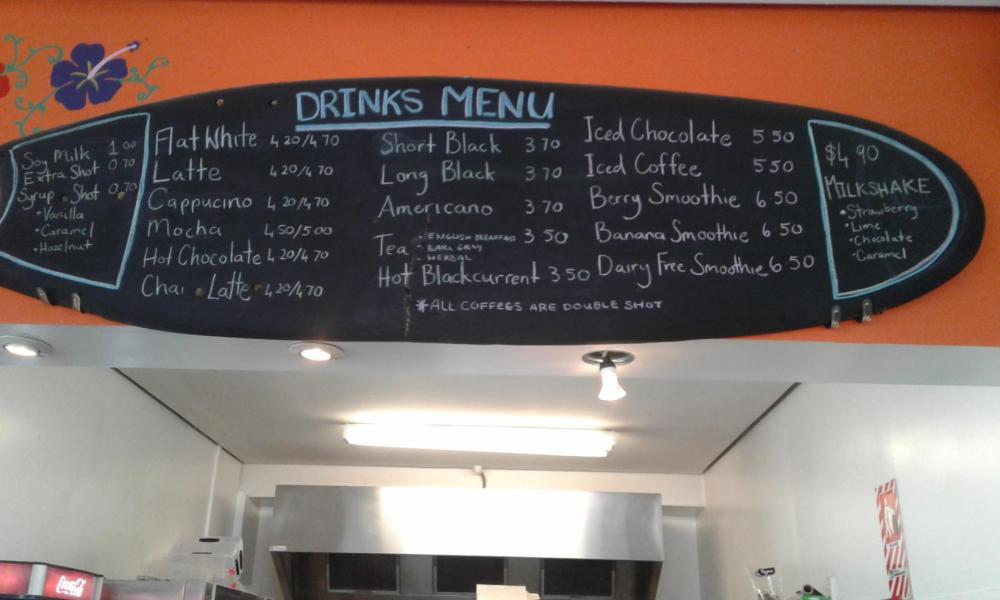 DRINKS MENU
Soy Milk 1 00
Extra Shot 0 70
Syrup Shot 0 70
• Vanilla
• Caramel
• Hazelnut
Flat White 4 20/4 70
Latte 4 20/4 70
Cappucino 4 20/4 70
Mocha 4 50/5 00
Hot Chocolate 4 20/4 70
Chai Latte 4 20/4 70
Short Black 3 70
Long Black 3 70
Americano 3 70
Tea - ENGLISH BREAKFAST 3 50
- EARL GRAY
- HERBAL
Hot Blackcurrent 3.50
*ALL COFFEES ARE DOUBLE SHOT
Iced Chocolate 5 50
Iced Coffee 5 50
Berry Smoothie 6 50
Banana Smoothie 6 50
Dairy Free Smoothie 6.50
$4 90
MILKSHAKE
• Strawberry
• Lime
• Chocolate
• Caramel
Coca-Cola